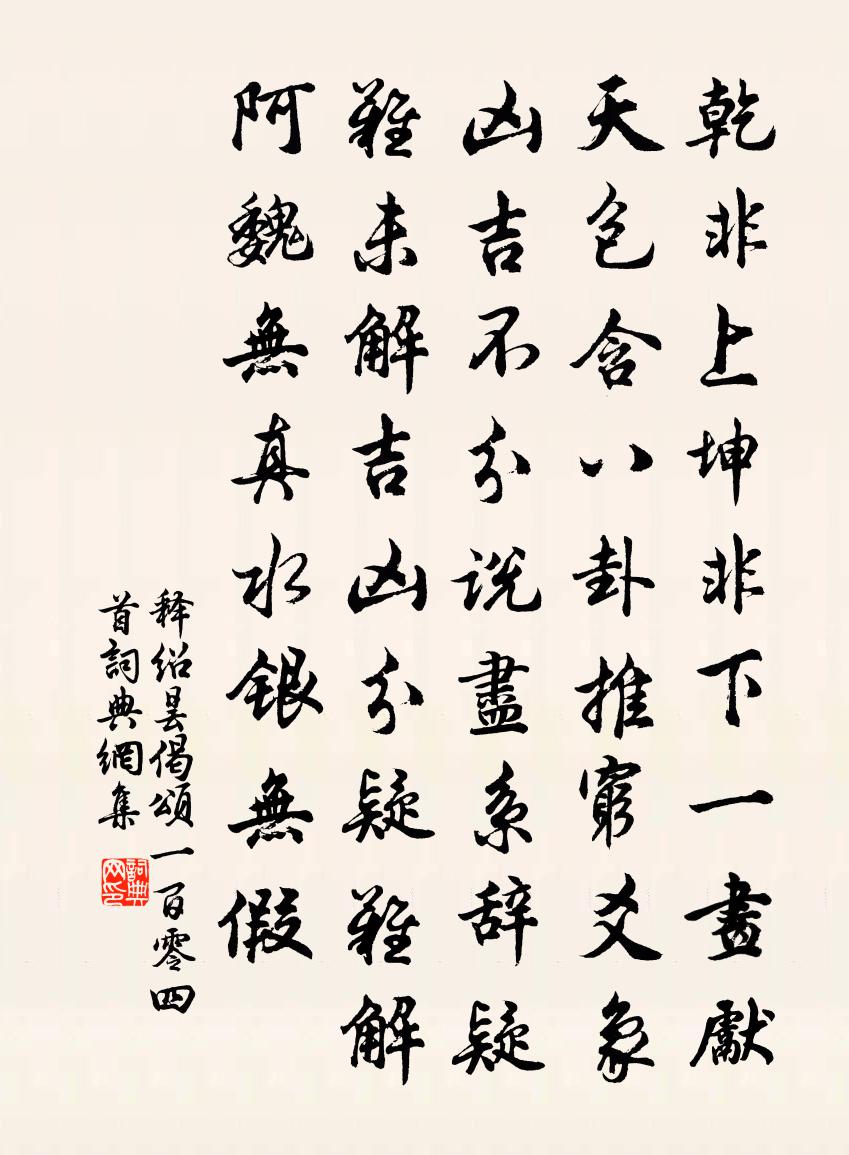 乾非上坤非下一畫獻
天包含八卦推窮爻象
凶吉不分説盡系辞疑
難未解吉凶分疑難解
阿魏無真水銀無假
释绍昙偈頌一百零四
首詞典網集
詞典
网印